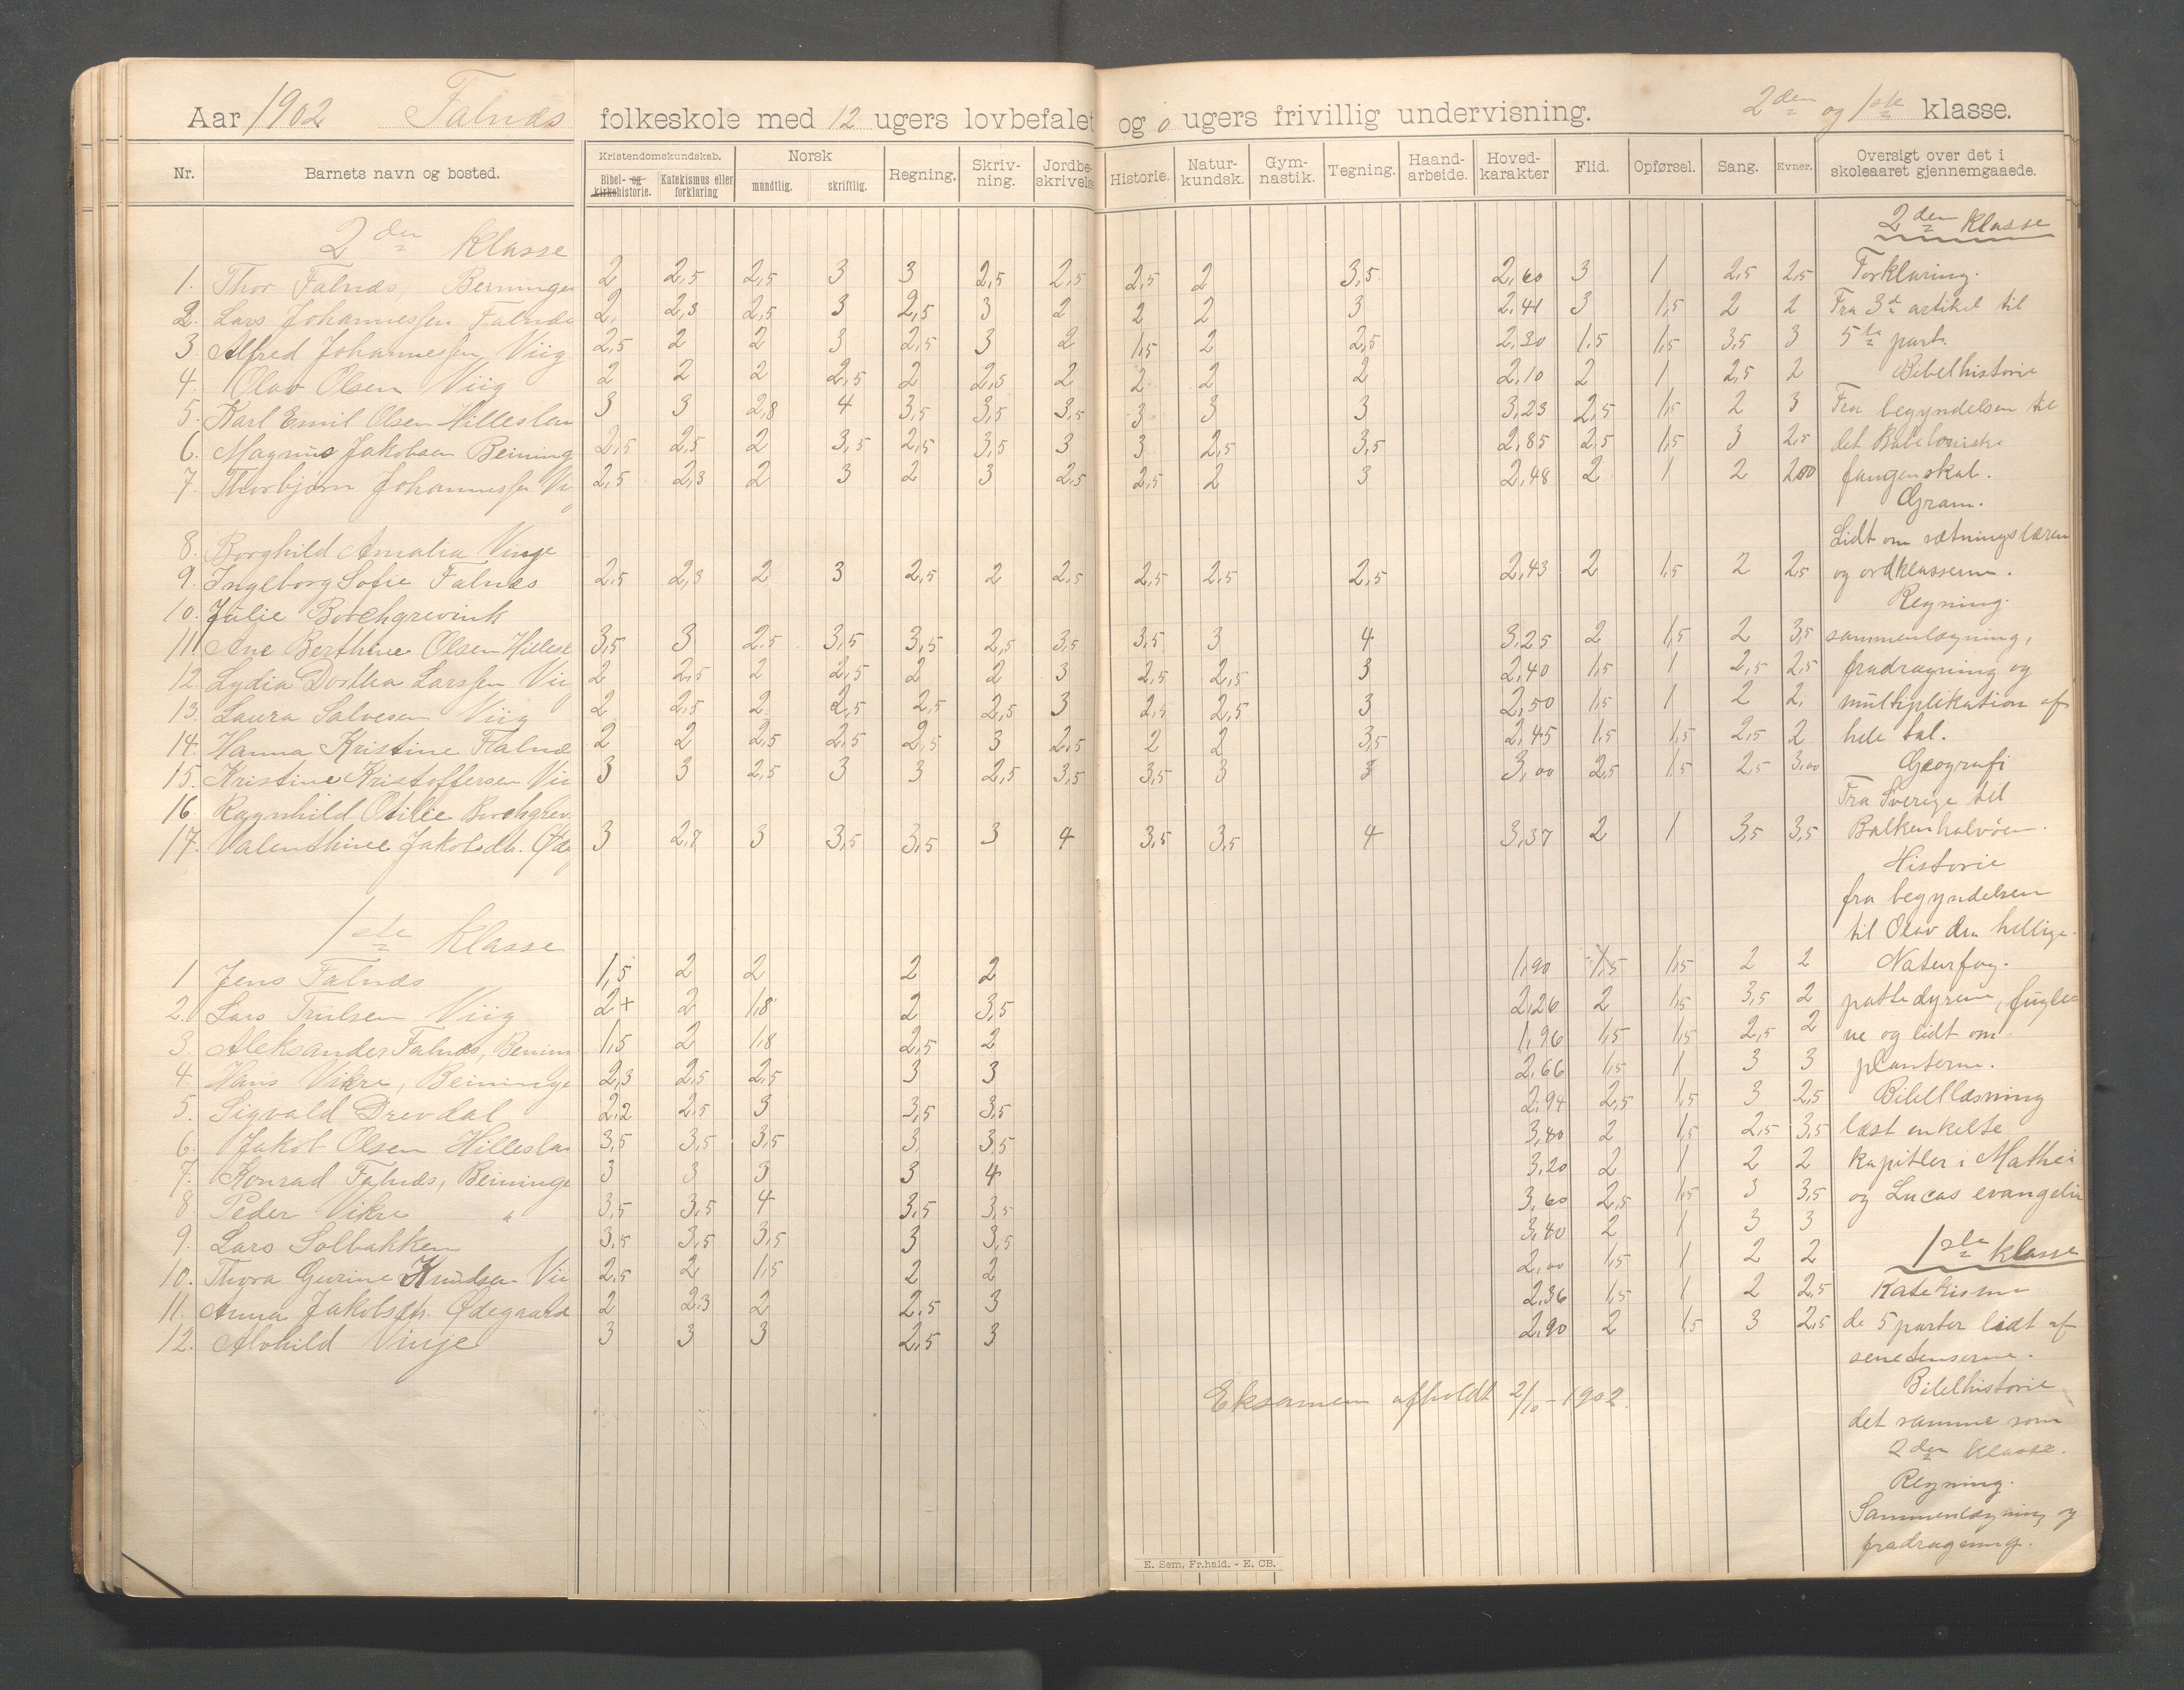 Aar 1902 Falnæs folkeskole med 12 ugers lovbefalet og 0 ugers frivillig undervisning. 2den og 1ste klasse.
Nr. Barnets navn og bosted. Kristendomskundskab. Bibel- og kirkehistorie. Katekismus eller forklaring Norsk mundtlig. skriftlig. Regning. Skriv-ning. Jordbe-skrivelse Historie. Natur-kundsk. Gym-nastik. Tegning. Haand-arbeide. Hoved-karakter Flid. Opførsel. Sang. Evner. Oversigt over det i skoleaaret gjennemgaaede.
2den klasse
1. Thor Falnæs, Beininge 2 2,5 2,5 3 3 2,5 2,5 2,5 2 3,5 2,60 3 1 2,5 2,5
2. Lars Johannessen Falnæs 2, 2,3 2,5 3 2,5 3 2 2 2 3 2,41 3 1,5 2 2
3. Alfred Johannessen Viig 2,5 2 2 3 2,5 3 2 1,5 2 2,5 2,30 1,5 1,5 3,5 3
4. Olav Olsen Viig 2 2 2 2,5 2 2,5 2 2 2 2 2,10 2 1 2,5 2
5. Karl Emil Olsen Hilleslan 3 3 2,8 4 3,5 3,5 3,5 3 3 3 3,23 2,5 1,5 2 3
6. Magnus Jakobsen Beining 2,5 2,5 2 3,5 2,5 3,5 3 3 2,5 3,5 2,85 2,5 1,5 3 2,5
7. Thorbjørn Johannessen Vi 2,5 2,3 2 3 2 3 2,5 2,5 2 3 2,48 2 1 2 2,00
8. Borghild Amalia Vinje
9. Ingeborg Sofie Falnæs 2,5 2,3 2 3 2,5 2 2,5 2,5 2,5 2,5 2,43 2 1,5 2 2,5
10. Julie Borchgrevink
11. Ane Berthine Olsen Hillesl 3,5 3 2,5 3,5 3,5 2,5 3,5 3,5 3 4 3,25 2 1,5 2 3,5
12. Lydia Dorthea Larssen Vii 2 2,5 2 2,5 2 2 3 2,5 2,5 3 2,40 1,5 1 2,5 2,5
13. Laura Salvesen Viig 2 2,5 2 2,5 2,5 2,5 3 2,5 2,5 3 2,50 1,5 1 2 2,
14. Hanna Kristine Falnæ 2 2 2,5 2,5 2,5 3 2,5 2 2 3,5 2,45 1,5 1,5 2,5 2
15. Kristine Kristoffersen Vii 3 3 2,5 3 3 2,5 3,5 3,5 3 3 3,00 2,5 1,5 2,5 3,00
16 Ragnhild Otilie Borchgrev
17. Valenthine Jakobsdt. Øde 3 2,7 3 3,5 3,5 3 4 3,5 3,5 4 3,37 2 1 3,5 3,5
1ste klasse
1 Jens Falnæs 1,5 2 2 2 2 1,90 1,5 1,5 2 2
2. Lars Trulsen Viig 2+ 2 1,8 2 3,5 2,26 2 1,5 3,5 2
3. Aleksander Falnæs, Beinin 1,5 2 1,8 2,5 2 1,96 1,5 1,5 2,5 2
4. Hans Vikre, Beininge 2,3 2,5 2,5 3 3 2,66 1,5 1 3 3
5. Sigvald Drevdal 2,2 2,5 3 3,5 3,5 2,94 2,5 1,5 3 2,5
6. Jakob Olsen Hilleslan 3,5 3,5 3,5 3, 3,5 3,40 2 1,5 2,5 3,5
7. Konrad Falnæs, Beininge 3 3 3 3 4 3,20 2 1 2 2
8. Peder Vikre " 3,5 3,5 4 3,5 3,5 3,60 2,5 1,5 3 3,5
9. Lars Solbakken 3,5 3,5 3,5 3 3,5 3,40 2 1 3 3
10. Thora Gurine Knudsen Vii 2,5 2 1,5 2 2 2,00 1,5 1 2 2
11. Anna Jakobsdtr. Ødegaard 2 2,3 2 2,5 3 2,36 1,5 1 2 2,5
12. Alvhild Vinje 3 3 3 2,5 3 2,90 2 1,5 3 2,5
Eksamen afholdt 2/10 - 1902.
2den klasse
Forklaring.
Fra 3d artikel til
5te part.
Bibelhistorie
Fra begyndelsen til
det Babeloniske
fangenskab.
Gram.
Lidt om sætningslæren
og ordklasserne.
Regning.
sammenlægning,
fradragning og
multiplikation af
hele tal.
Geografi
Fra Sverige til
Balkenhalvøen.
Historie
fra begyndelsen
til Olav den hellige.
Naturfag.
pattedyrene, fugle-
ne og lidt om
planterne.
Bibellæsning
læst enkelte
kapitler i Mathei
og Lucas evangelie
1ste klasse
Katekisme
de 5 parter lidt af
Bibelhistorie
det samme som
2den klasse.
Regning.
Sammenlægning og
fradragning.
E. Sem, Fr.hald. - E. CB.